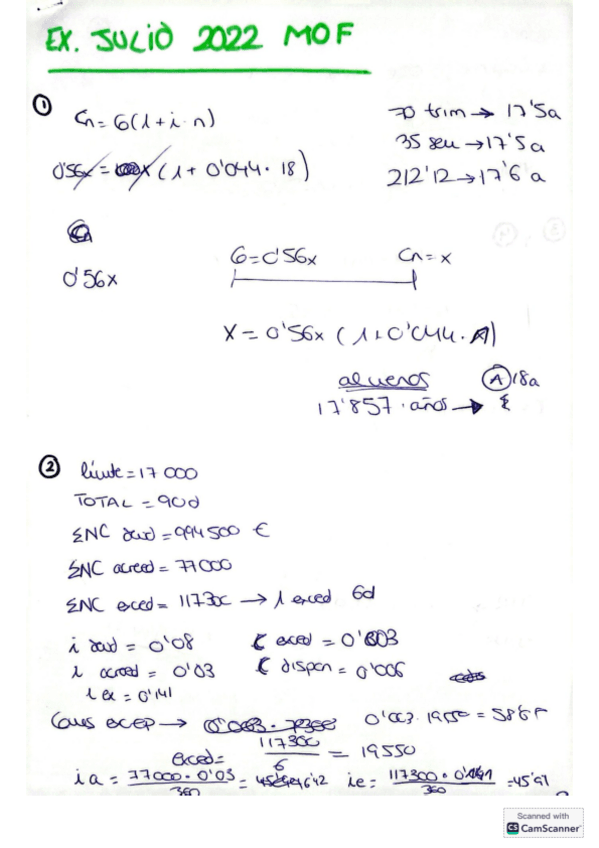 EX. JULIO 2022 MOF
①
Cn = G(1+i·n)
70 trim → 17'5a
35 sem → 17'5a
212'12 → 17'6a
0'56x = (1 + 0'044 · 18)
0'56x
G = 0'56x
Cn = x
X = 0'56x (1+0'044·A)
al menos
Ⓐ 18a
17'857 · años →
②
límite = 17 000
TOTAL = 90d
ΣNC deud = 994500 €
ΣNC acreed = 77000
ΣNC exced = 117300 → 1 exced 6d
i deud = 0'08
i acreed = 0'03
i ex = 0'141
exced = 0'003
dispon = 0'006
Comis excep →
0'003 · 19550 = 58'65
exced = 117300 / 6 = 19550
ia = 77000 · 0'03 / 360 = 6'42
ie = 117300 · 0'141 / 360 = 45'91
Scanned with
CS CamScanner